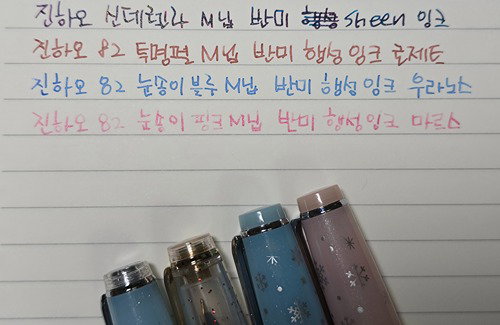 진하오 신데렐라 M닙 반미 sheen 잉크
진하오 82 투명펄 M닙 반미 행성잉크 로제트
진하오 82 눈송이 블루 M닙 반미 행성잉크 우라노스
진하오 82 눈송이 핑크 M닙 반미 행성잉크 마르스